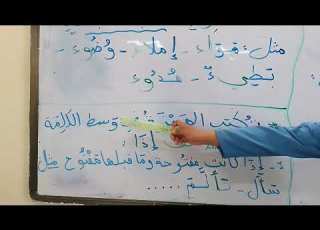 مثل: هواء - إملاء - وضوء -
بطيءٌ - هدوء
تكتب وسط الكلمة
إذا:
إذا كانت مفتوحة وما قبلها مفتوح مثل
سأل - تألم .....